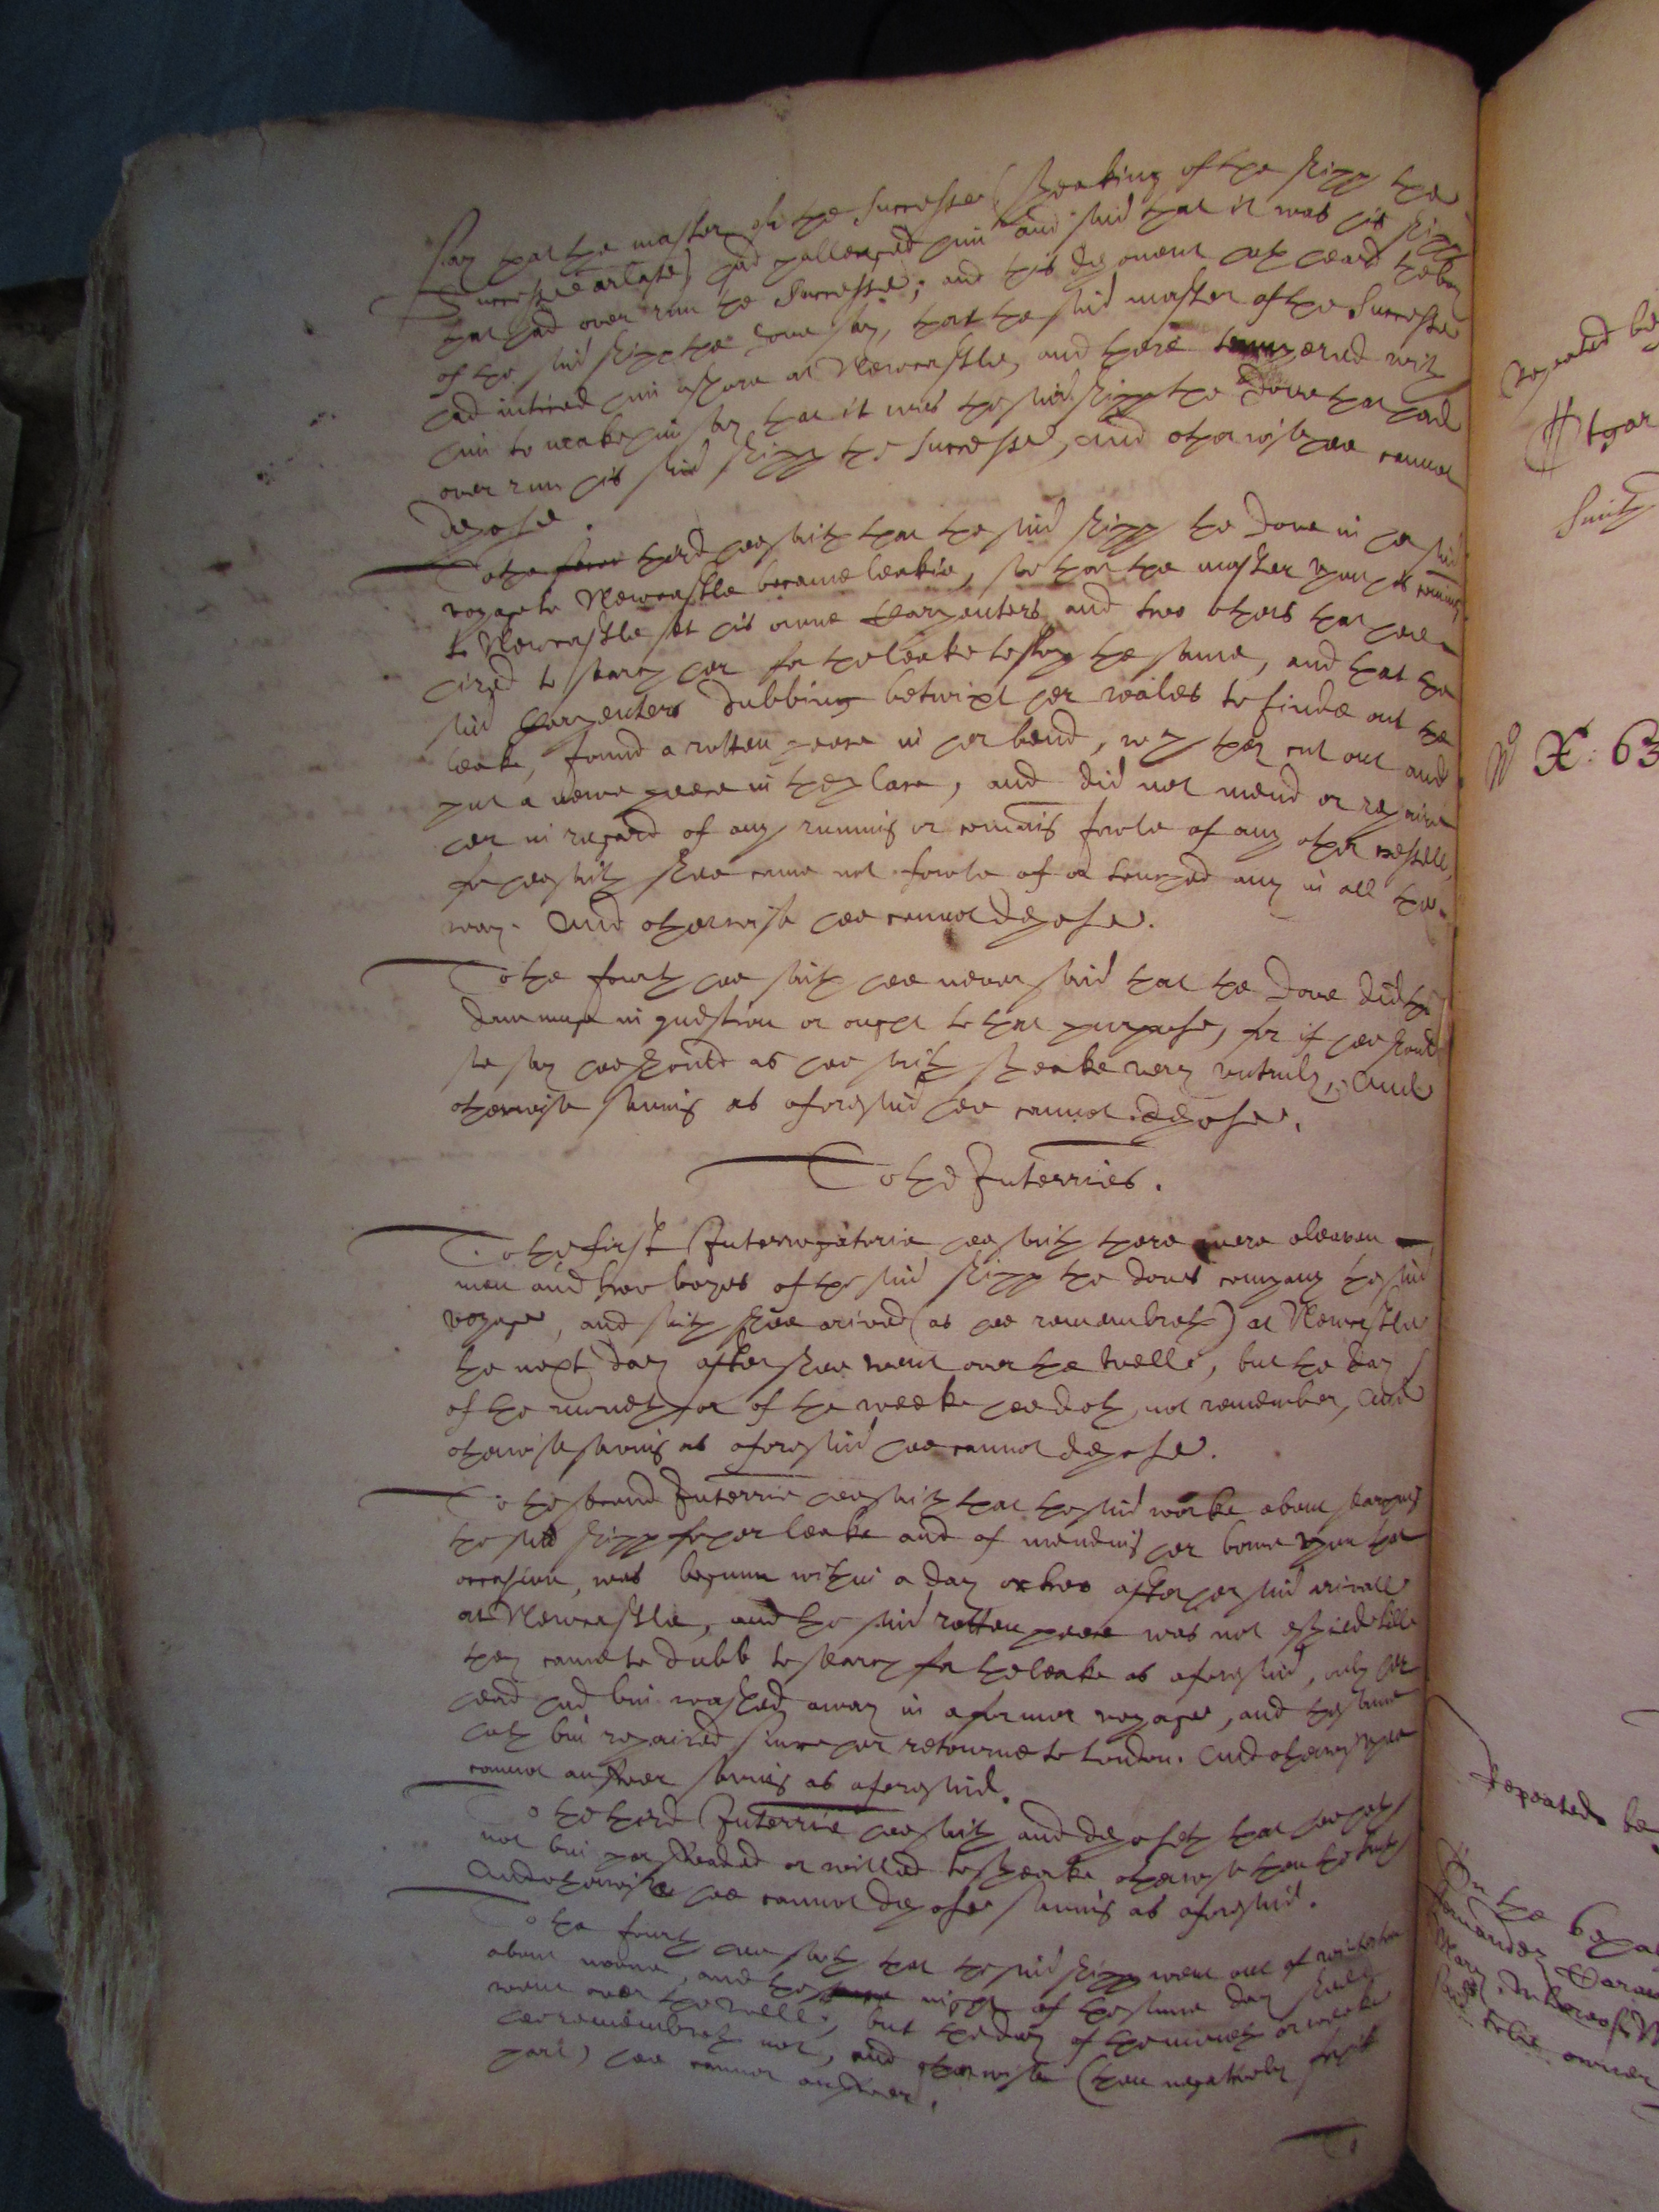 say that the master of the Successe (speaking of the shipp the
Successe arlate) had challenged him and said that it was his shipp
that had over run the Successe; and this deponent hath heard the boy
of the said shipp the Dove say, that the said master of the Successe
had intised him ashore at Newcastle, and there tempered with
him to make him say that it was the said shipp the Dove that had
over run his said shipp the Successe, and otherwise hee cannot
depose.
To the third hee saith that the said shipp the Dove in her said
voyage to Newcastle became leakie, so that the master upon his comming
to Newcastle set his owne Carpenters and two others that hee
hired to search her for the leake to stopp the same, and that the
said Carpenters dubbing betwixt her wailes to finde out the
leake, found a rotten peece in her bend, which they cut out and
put a newe peece in the place, and did not mend or repaire
her in regard of any running or comming fowle of any other vessell,
for hee saith shee came not fowle of or touched any in all the
way. And otherwise hee cannot depose.
To the fourth hee saith hee never said that the Dove did the
dammage in question or ought to that purpose, for if hee should
so say hee should as hee saith speake very untruly, And
otherwise saving as aforesaid hee cannot depose.
To the Interries.
To the first Interrogatorie hee saith there were eleaven
men and two boyes of the said shipp the Doves company the said
voyage, and saith shee arived (as hee remembreth) at Newcastle
the next day after shee went over the Swelle, but the day
of the moneth or of the weeke hee doth not remember, And
otherwise saving as aforesaid hee cannot depose.
To the second Interrie hee saith that the said worke about searching
the said shipp for her leake and of mending her bowe upon that
occasion, was begunn within a day or two after her said arivall
at Newcastle, and the said rotten peece was not espied till
they came to dubb to search for the leake as aforesaid, only her
head had bin washed away in a former voyage, and the same
hath bin repaired since her retourne to London. And otherwise hee
cannot answer saving as aforesaid.
To the third Interrie hee saith and deposeth that hee hath
not bin perswaded or willed to speake otherwise than the truth
And otherwise hee cannot depose saving as aforesaid.
To the fourth hee saith that the said shipp went out of
about noone, and the night of the same day shee
went over the Swelle; but the day of the moneth or weeke
hee remembreth not, and otherwise (then negatively for his
part) hee cannot answer.
To
Repeated
X: 63
Repeated